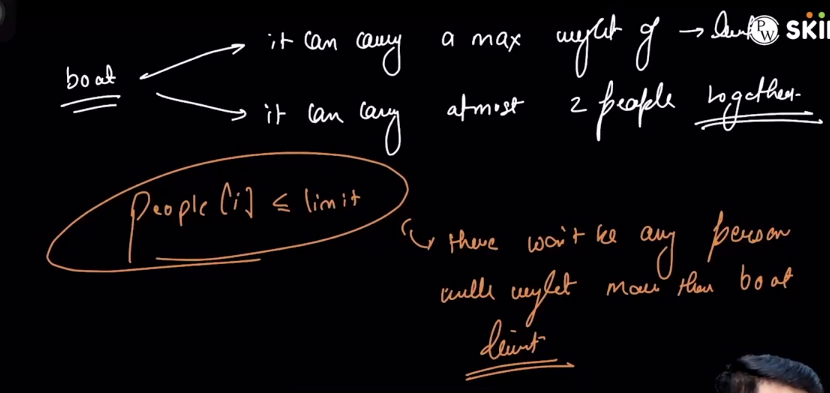 it can carry a max weight of → limit
PW SKIL
boat
it can carry atmost 2 people together
people[i] ≤ limit
there won't be any person
with weight more than boat
limit